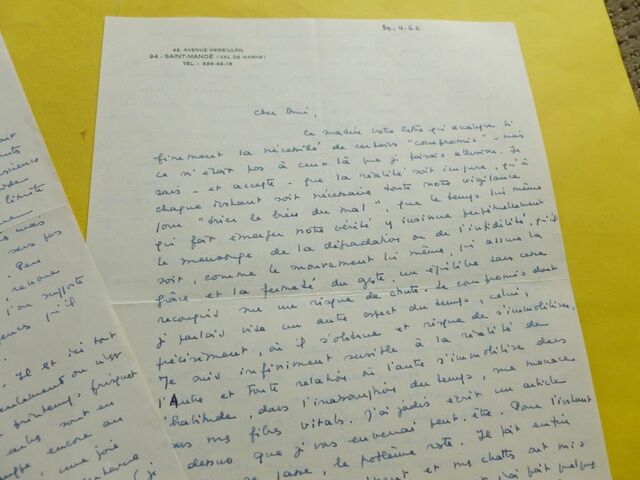 30.4.66
42, AVENUE HERBILLON
94 - SAINT-MANDÉ (VAL DE MARNE)
TÉL. : 328-42-18
Cher Ami,
Ce matin votre lettre qui analyse si
finement la nécessité de certains "compromis" - mais
ce n'était pas à ceux là que je faisais allusion. Je
sais - et accepte - que la réalité soit impure, qu'à
chaque instant soit nécessaire toute notre vigilance
pour "trier le bien du mal", que le temps lui même
qui fait émerger notre vérité y insinue perpétuellement
le mensonge de la dégradation ou de l'infidélité, qu'il
soit, comme le mouvement lui même, qui assure la
grâce et la fermeté du geste, un équilibre sans cesse
reconquis sur un risque de chute. Le compromis dont
je parlais vise un autre aspect du temps, celui,
précisément, où il s'obstine et risque de s'immobiliser.
Je suis infiniment sensible à la réalité de
l'Autre et toute relation où l'autre s'immobilise dans
l'habitude, dans l'inattention du temps, me menace
mes fibres vitales. J'ai jadis écrit un article
dessus que je vous enverrai peut-être. Pour l'instant
passe, le problème reste. Il fait enfin
et mes chattes ont mis
j'ai fait quelques
sens pas
Peu
renoue
l'on supporte
qu'il
Il est ici tout
seulement
printemps frisquet
arbres sont en
encore au
une joie
limite